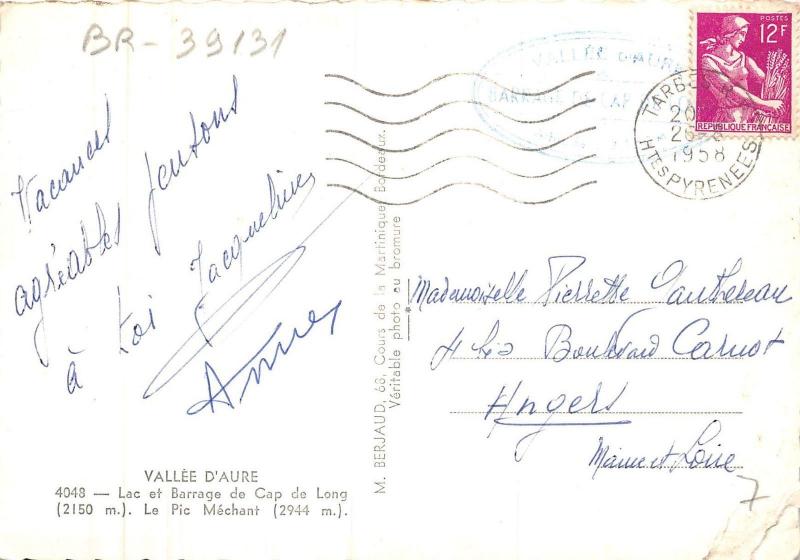 BR-39131
Vacances
agréables
à toi Jacqueline
Annie
VALLÉE D'AURE
4048 — Lac et Barrage de Cap de Long
(2150 m.). Le Pic Méchant (2944 m.).
M. BERJAUD, 68, Cours de la Martinique, Bordeaux.
Véritable photo au bromure
VALLÉE D'AURE
BARRAGE DE CAP
POSTES
12F
REPUBLIQUE FRANÇAISE
TARBES
1958
HTES PYRENEES
Mademoiselle Pierrette Gauthereau
4 bis Boulevard Carnot
Angers
Maine et Loire
7